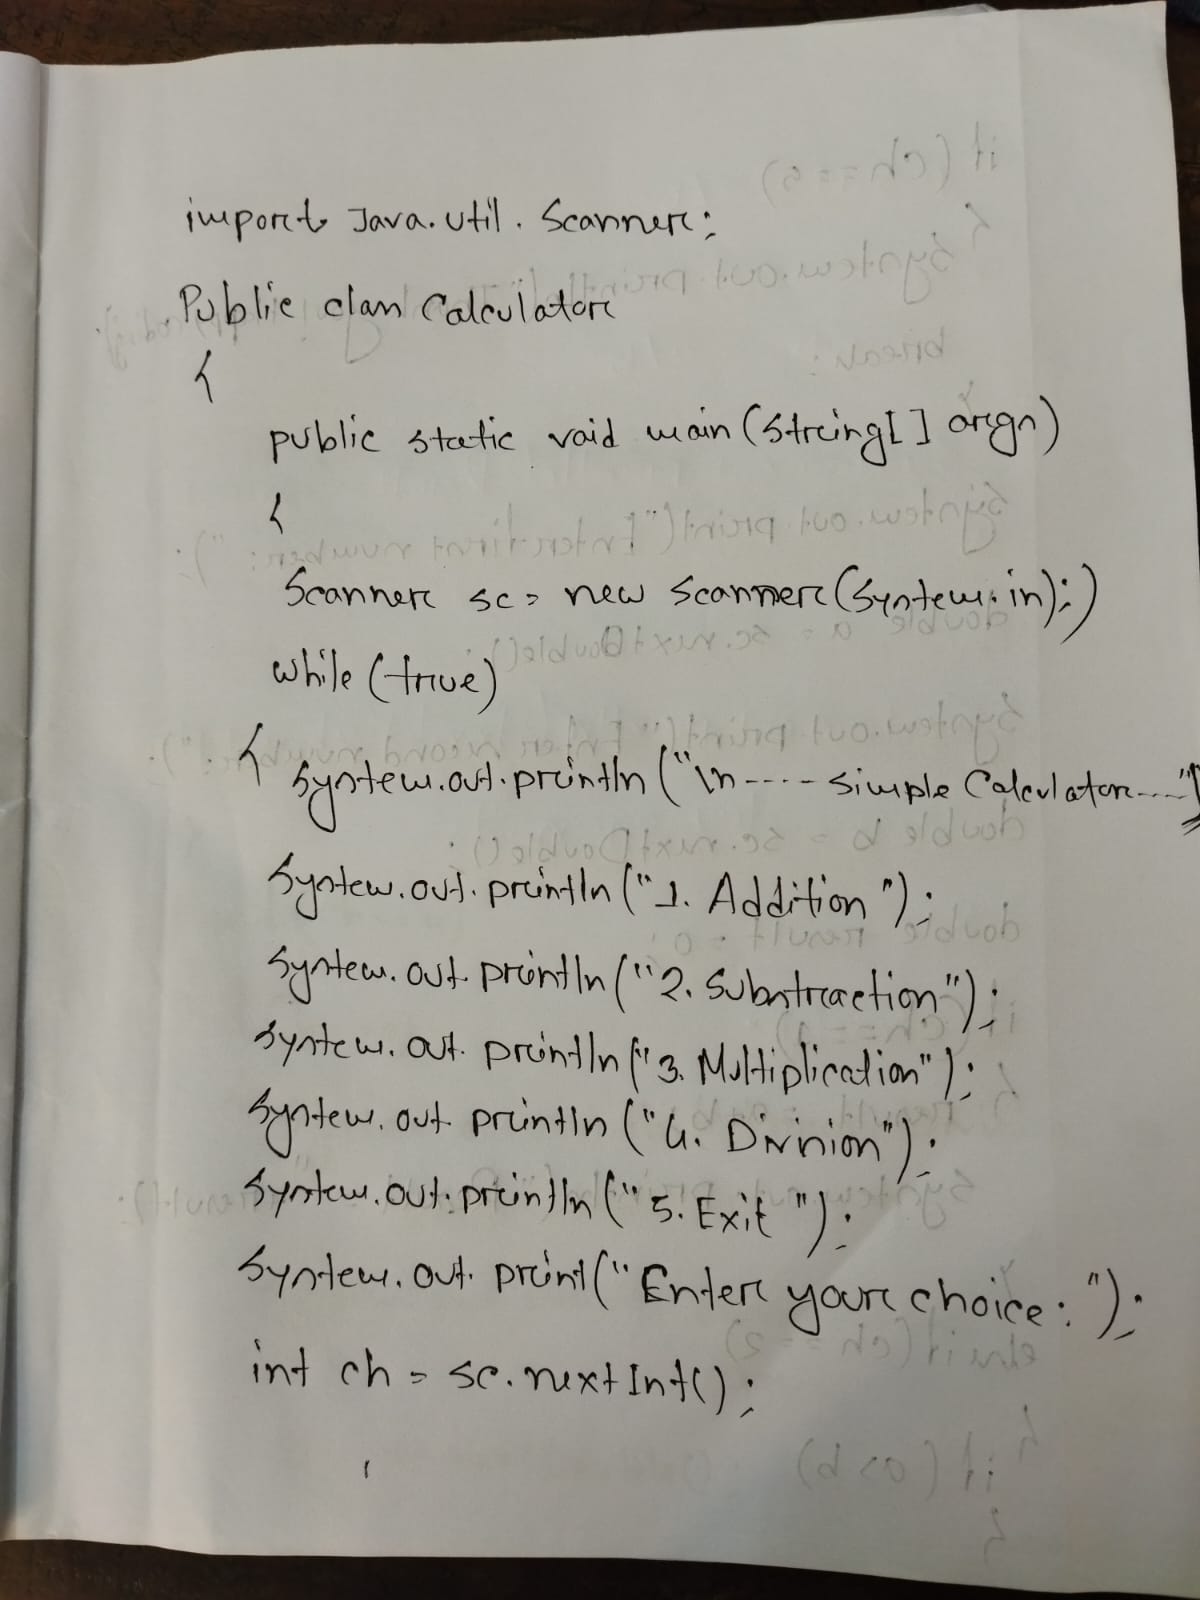 import Java.util.Scanner;
Public class Calculator
{
public static void main(String[] args)
{
Scanner sc = new Scanner(System.in);)
while (true)
{ System.out.println("\n----simple Calculator----")
System.out.println("1. Addition");
System.out.println("2. Substraction");
System.out.println("3. Multiplication");
System.out.println("4. Division");
System.out.println("5. Exit");
System.out.print("Enter your choice: ");
int ch = sc.nextInt();